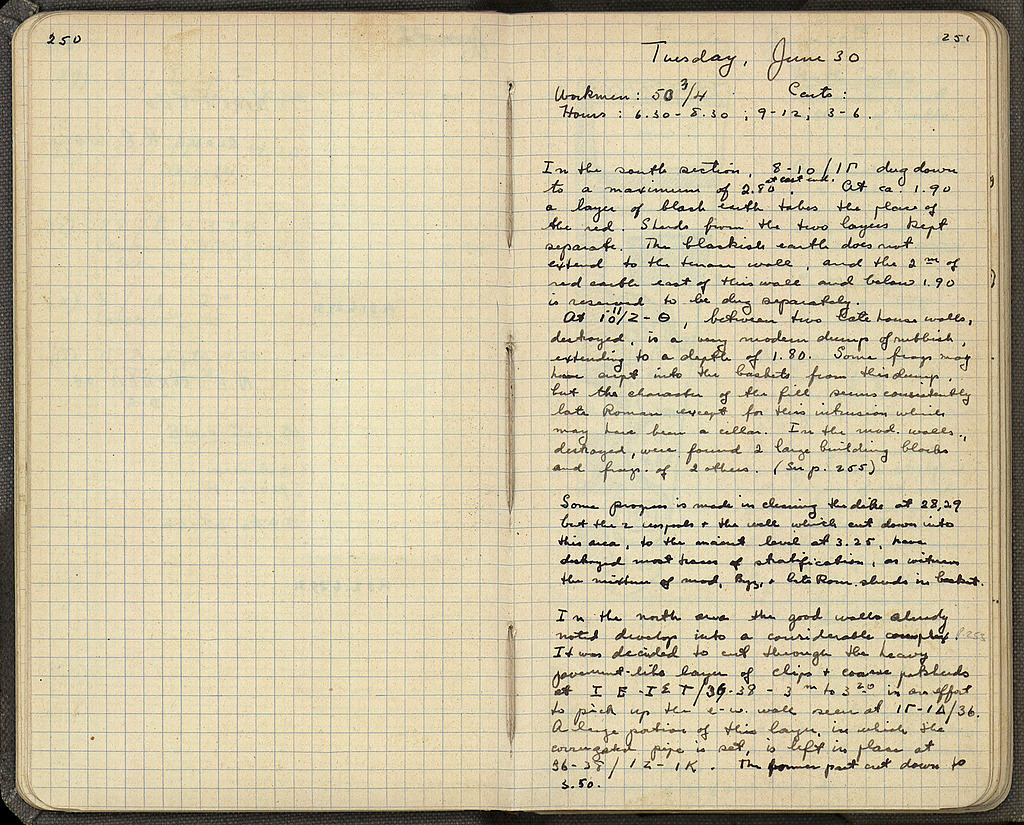 250
251
Tuesday, June 30
Workmen: 50 3/4 Carts:
Hours: 6.30-8.30; 9-12; 3-6.
In the south section, 8-10/ΙΓ dug down
to a maximum of 2.80 at east end. At ca. 1.90
a layer of black earth takes the place of
the red. Sherds from the two layers kept
separate. The blackish earth does not
extend to the terrace wall, and the 2 m of
red earth east of this wall and below 1.90
is reserved to be dug separately.
At 10/Ζ-Θ, between two late house walls,
destroyed, is a very modern dump of rubbish,
extending to a depth of 1.80. Some frags may
have crept into the baskets from this dump,
but the character of the fill seems consistently
late Roman except for this intrusion which
may have been a cellar. In the mod. walls,
destroyed, were found 2 large building blocks
and frags. of 2 others. (See p. 255)
Some progress is made in clearing the dike at 28,29
but the 2 cesspools + the wall which cut down into
this area, to the ancient level at 3.25, have
destroyed most traces of stratification, as witness
the mixture of mod, Byz, + late Rom. sherds in basket.
In the north area the good walls already
noted develop into a considerable complex P.253
It was decided to cut through the heavy
pavement-like layer of chips + coarse potsherds
at Ι Ε-Ι Σ Τ/36-38 - 3 m to 3 20 in an effort
to pick up the e-w. wall seen at ΙΓ-ΙΔ/36.
A large portion of this layer, in which the
corrugated pipe is set, is left in place at
36-38/ΙΖ-ΙΚ. The former part cut down to
3.50.